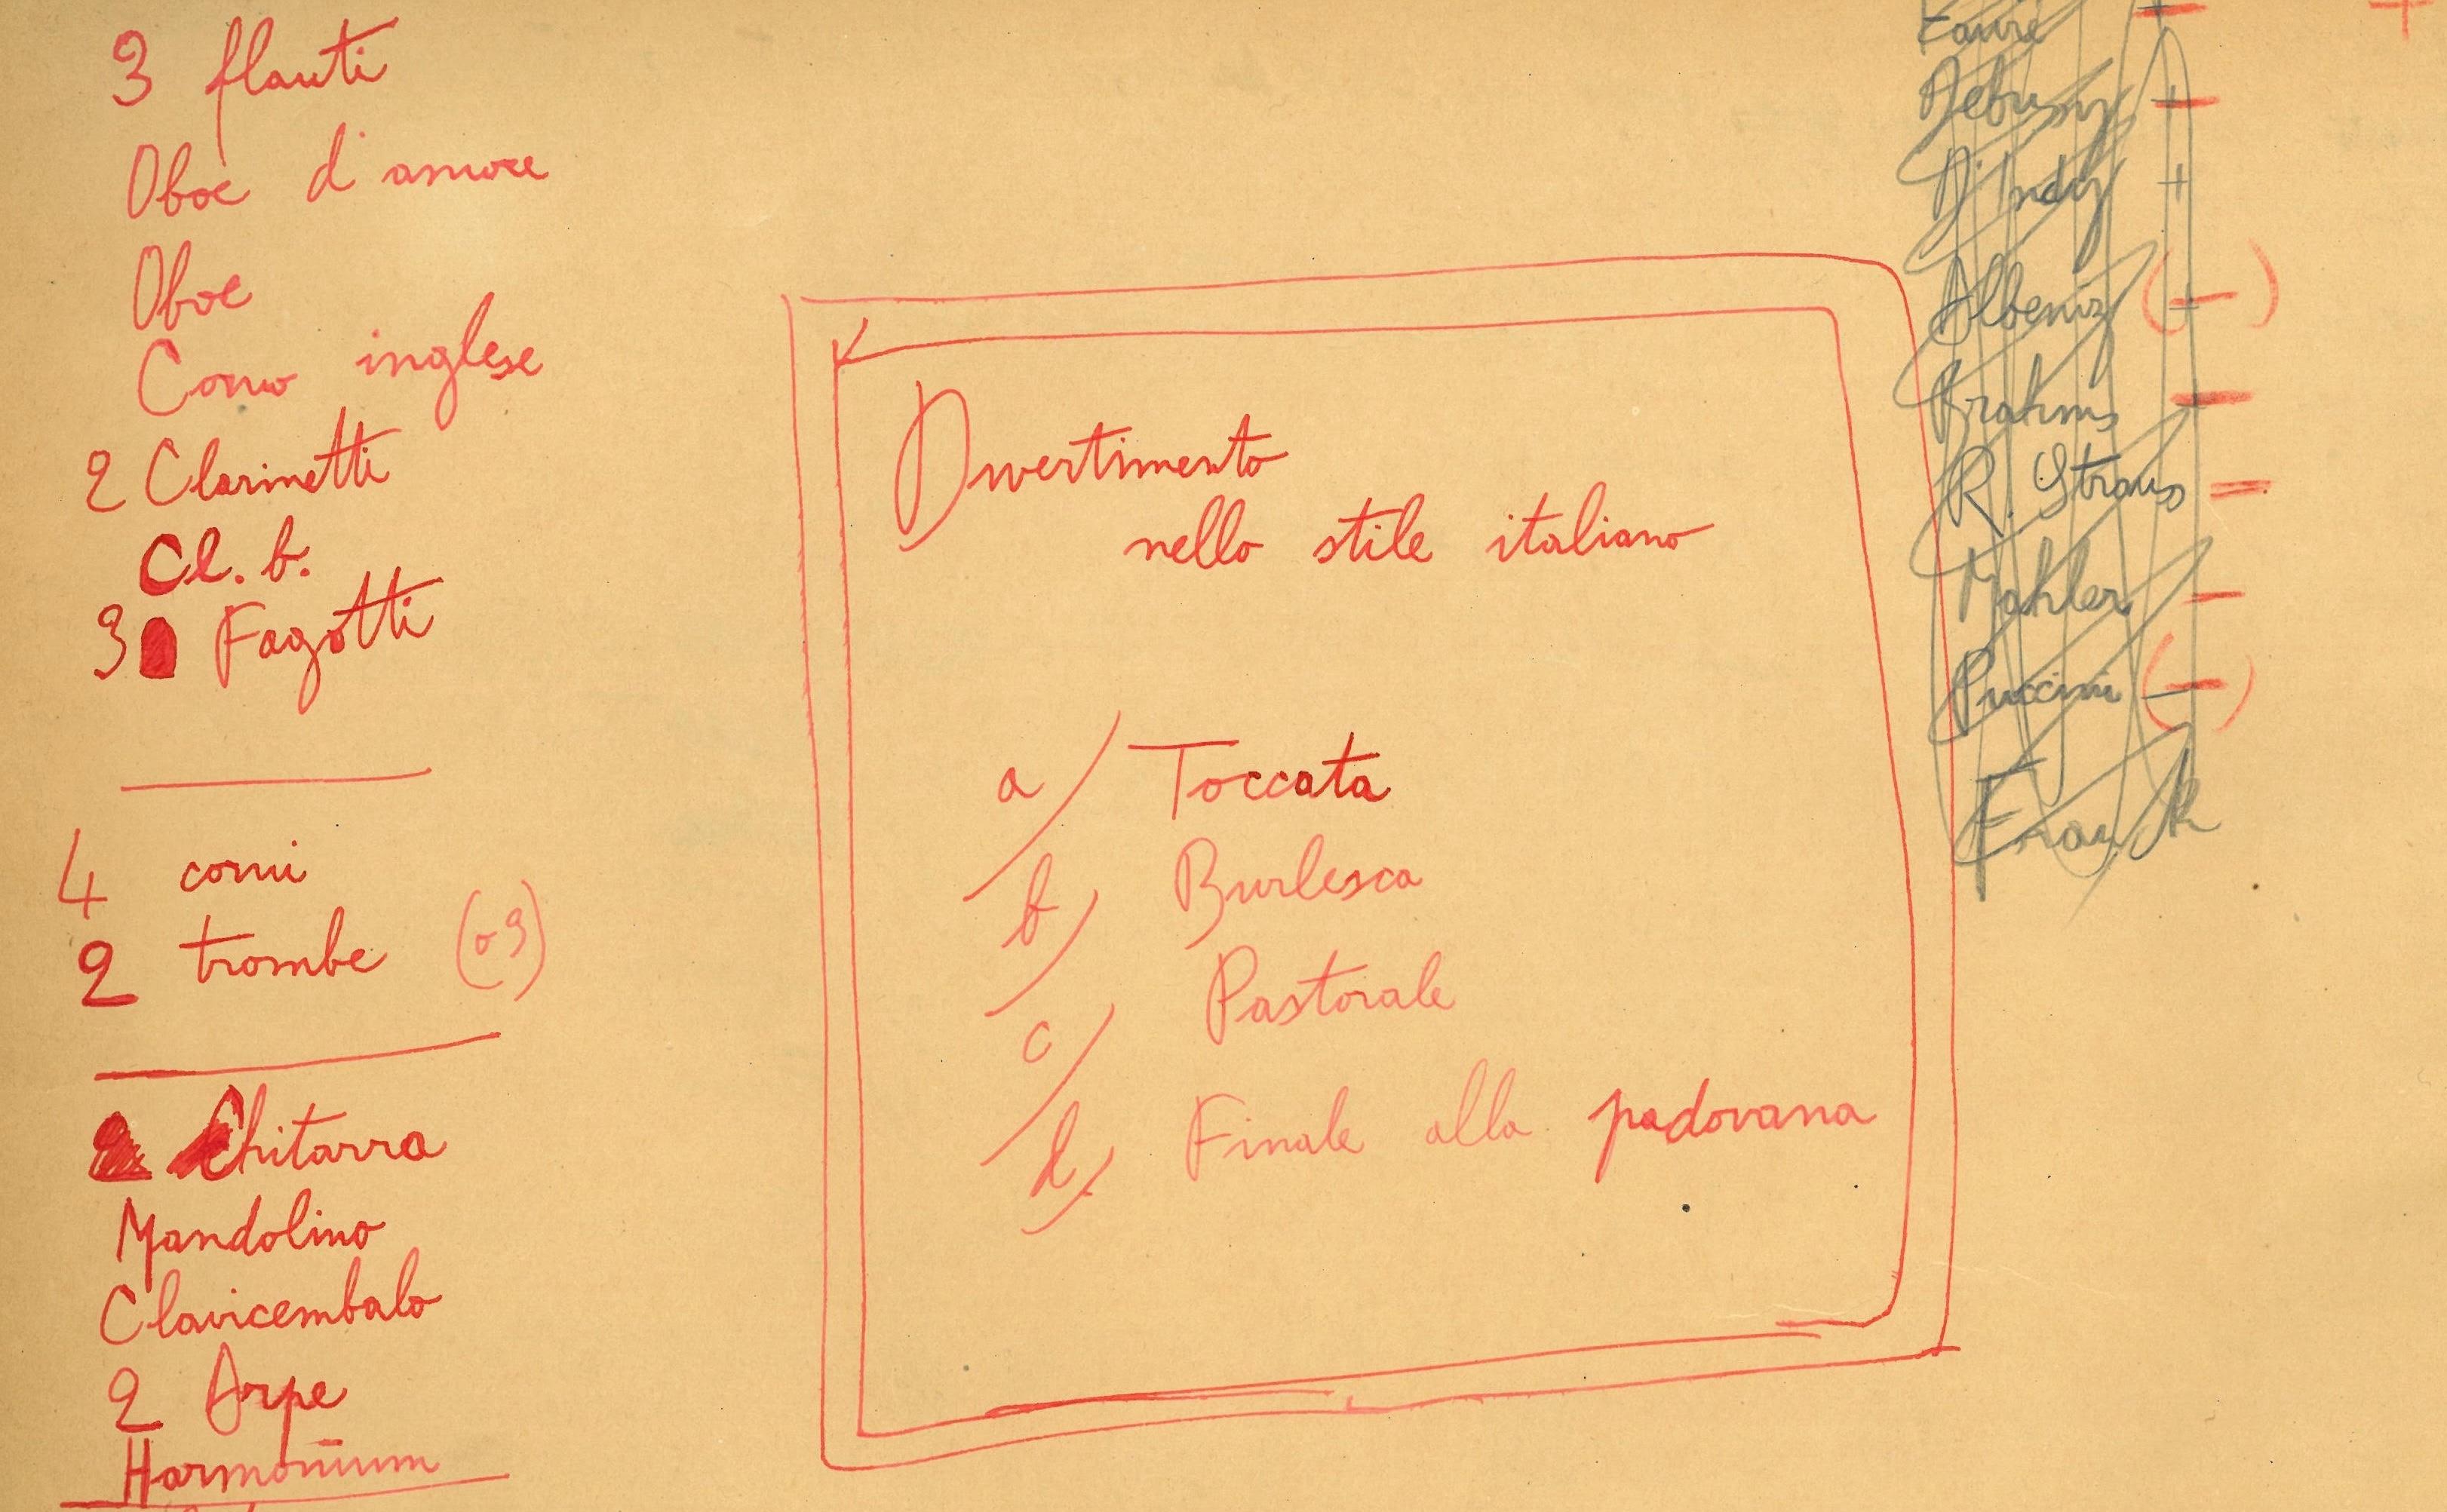 3 flauti
Oboe d'amore
Oboe
Corno inglese
2 Clarinetti
Cl. b.
3 Fagotti
4 corni
2 trombe (o 3)
Chitarra
Mandolino
Clavicembalo
2 Arpe
Harmonium
Divertimento
nello stile italiano
a/ Toccata
b/ Burlesca
c/ Pastorale
d/ Finale alla padovana
Faurè +
Debussy +
D'Indy +
Albeniz (+)
Brahms +
R. Strauss -
Mahler -
Puccini (-)
Franck